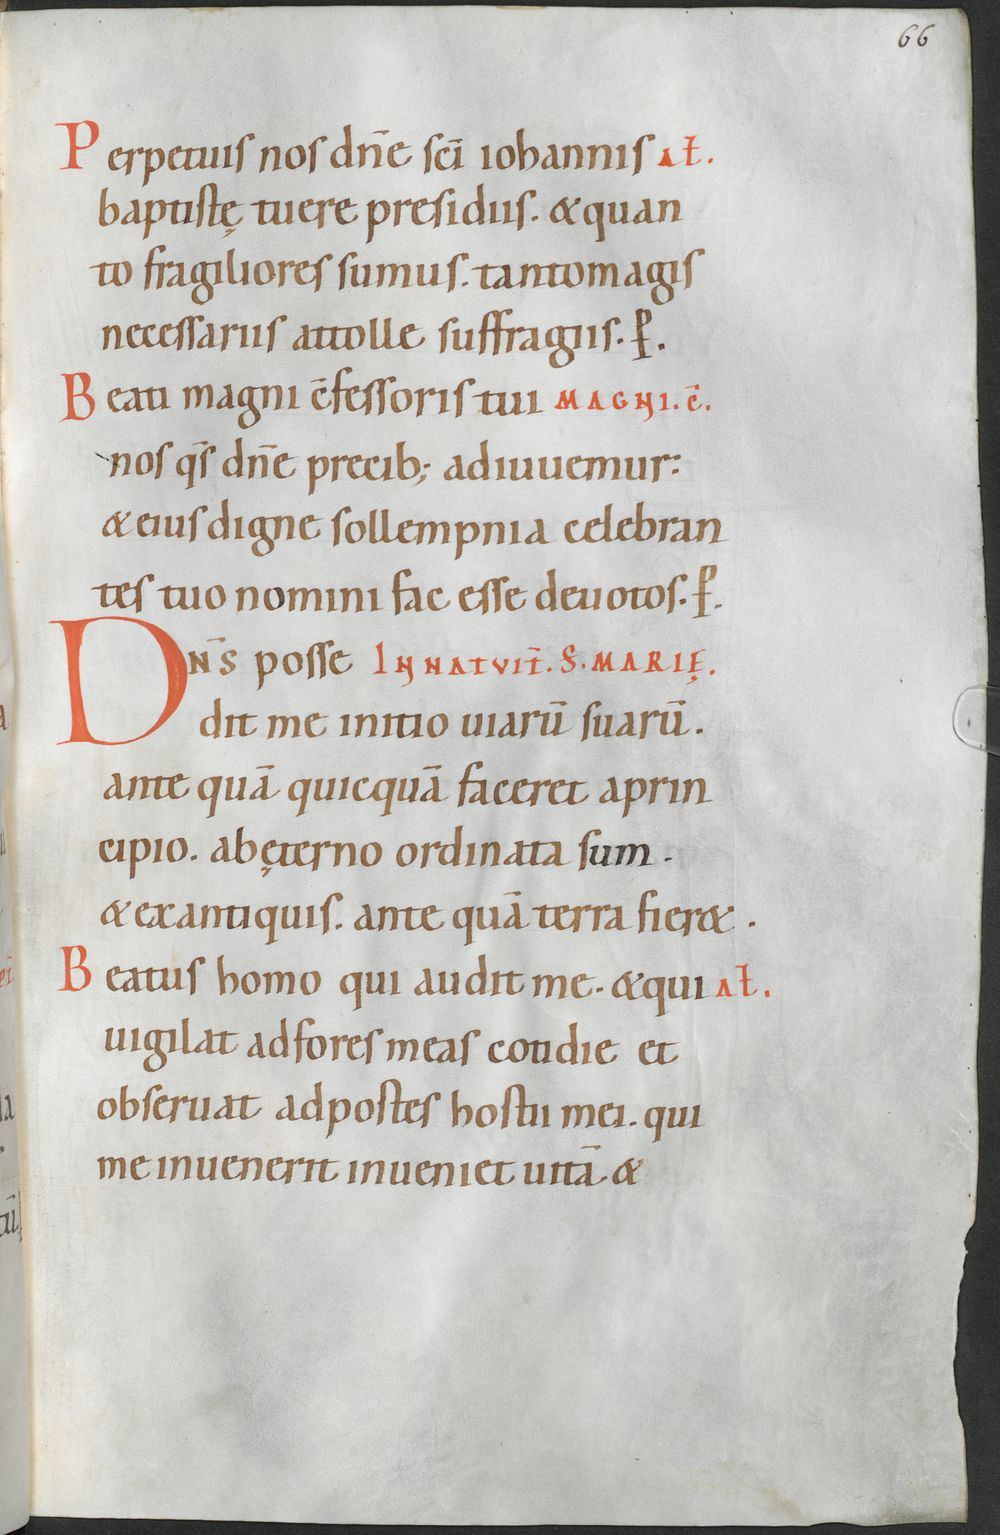 66
Perpetuis nos dn̄e sc̄i iohannis ał.
baptistę tuere presidiis. & quan
to fragiliores sumus. tanto magis
necessariis attolle suffragiis. ꝑ.
Beati magni c̄fessoris tui MAGNI. c̄.
nos q̄s dn̄e precib; adiuuemur:
& eius digne sollempnia celebran
tes tuo nomini fac esse deuotos. ꝑ.
DN̄S posse IN NATVIT̄. S. MARIĘ.
dit me initio uiarū suarū.
ante quā quicquā faceret a prin
cipio. ab ęterno ordinata sum.
& ex antiquis. ante quā terra fier&.
Beatus homo qui audit me. & qui ał.
uigilat ad fores meas cotidie et
obseruat ad postes hostii mei. qui
me inuenerit inueniet uitā &